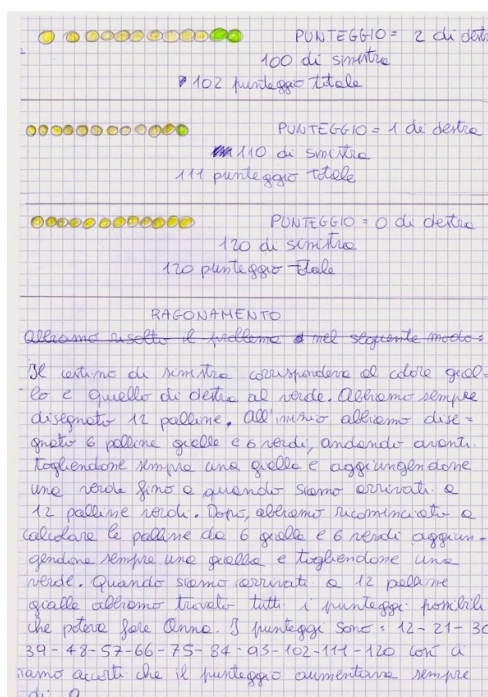 PUNTEGGIO = 2 di destra
100 di sinistra
102 punteggio totale
PUNTEGGIO = 1 di destra
110 di sinistra
111 punteggio totale
PUNTEGGIO = 0 di destra
120 di sinistra
120 punteggio totale
RAGONAMENTO
Abbiamo risolto il problema nel seguente modo:
Il cestino di sinistra corrispondeva al colore gial=
lo e quello di destra al verde. Abbiamo sempre
disegnato 12 palline. All'inizio abbiamo dise=
gnato 6 palline gialle e 6 verdi, andando avanti
togliendone sempre una gialla e aggiungendone
una verde fino a quando siamo arrivati a
12 palline verdi. Dopo, abbiamo ricominciato a
calcolare le palline da 6 gialle e 6 verdi aggiun-
gendone sempre una gialla e togliendone una
verde. Quando siamo arrivati a 12 palline
gialle abbiamo trovato tutti i punteggi possibili
che poteva fare Anna. I punteggi sono: 12-21-30
39-48-57-66-75-84-93-102-111-120 così ci
siamo accorti che il punteggio aumentava sempre
di 9